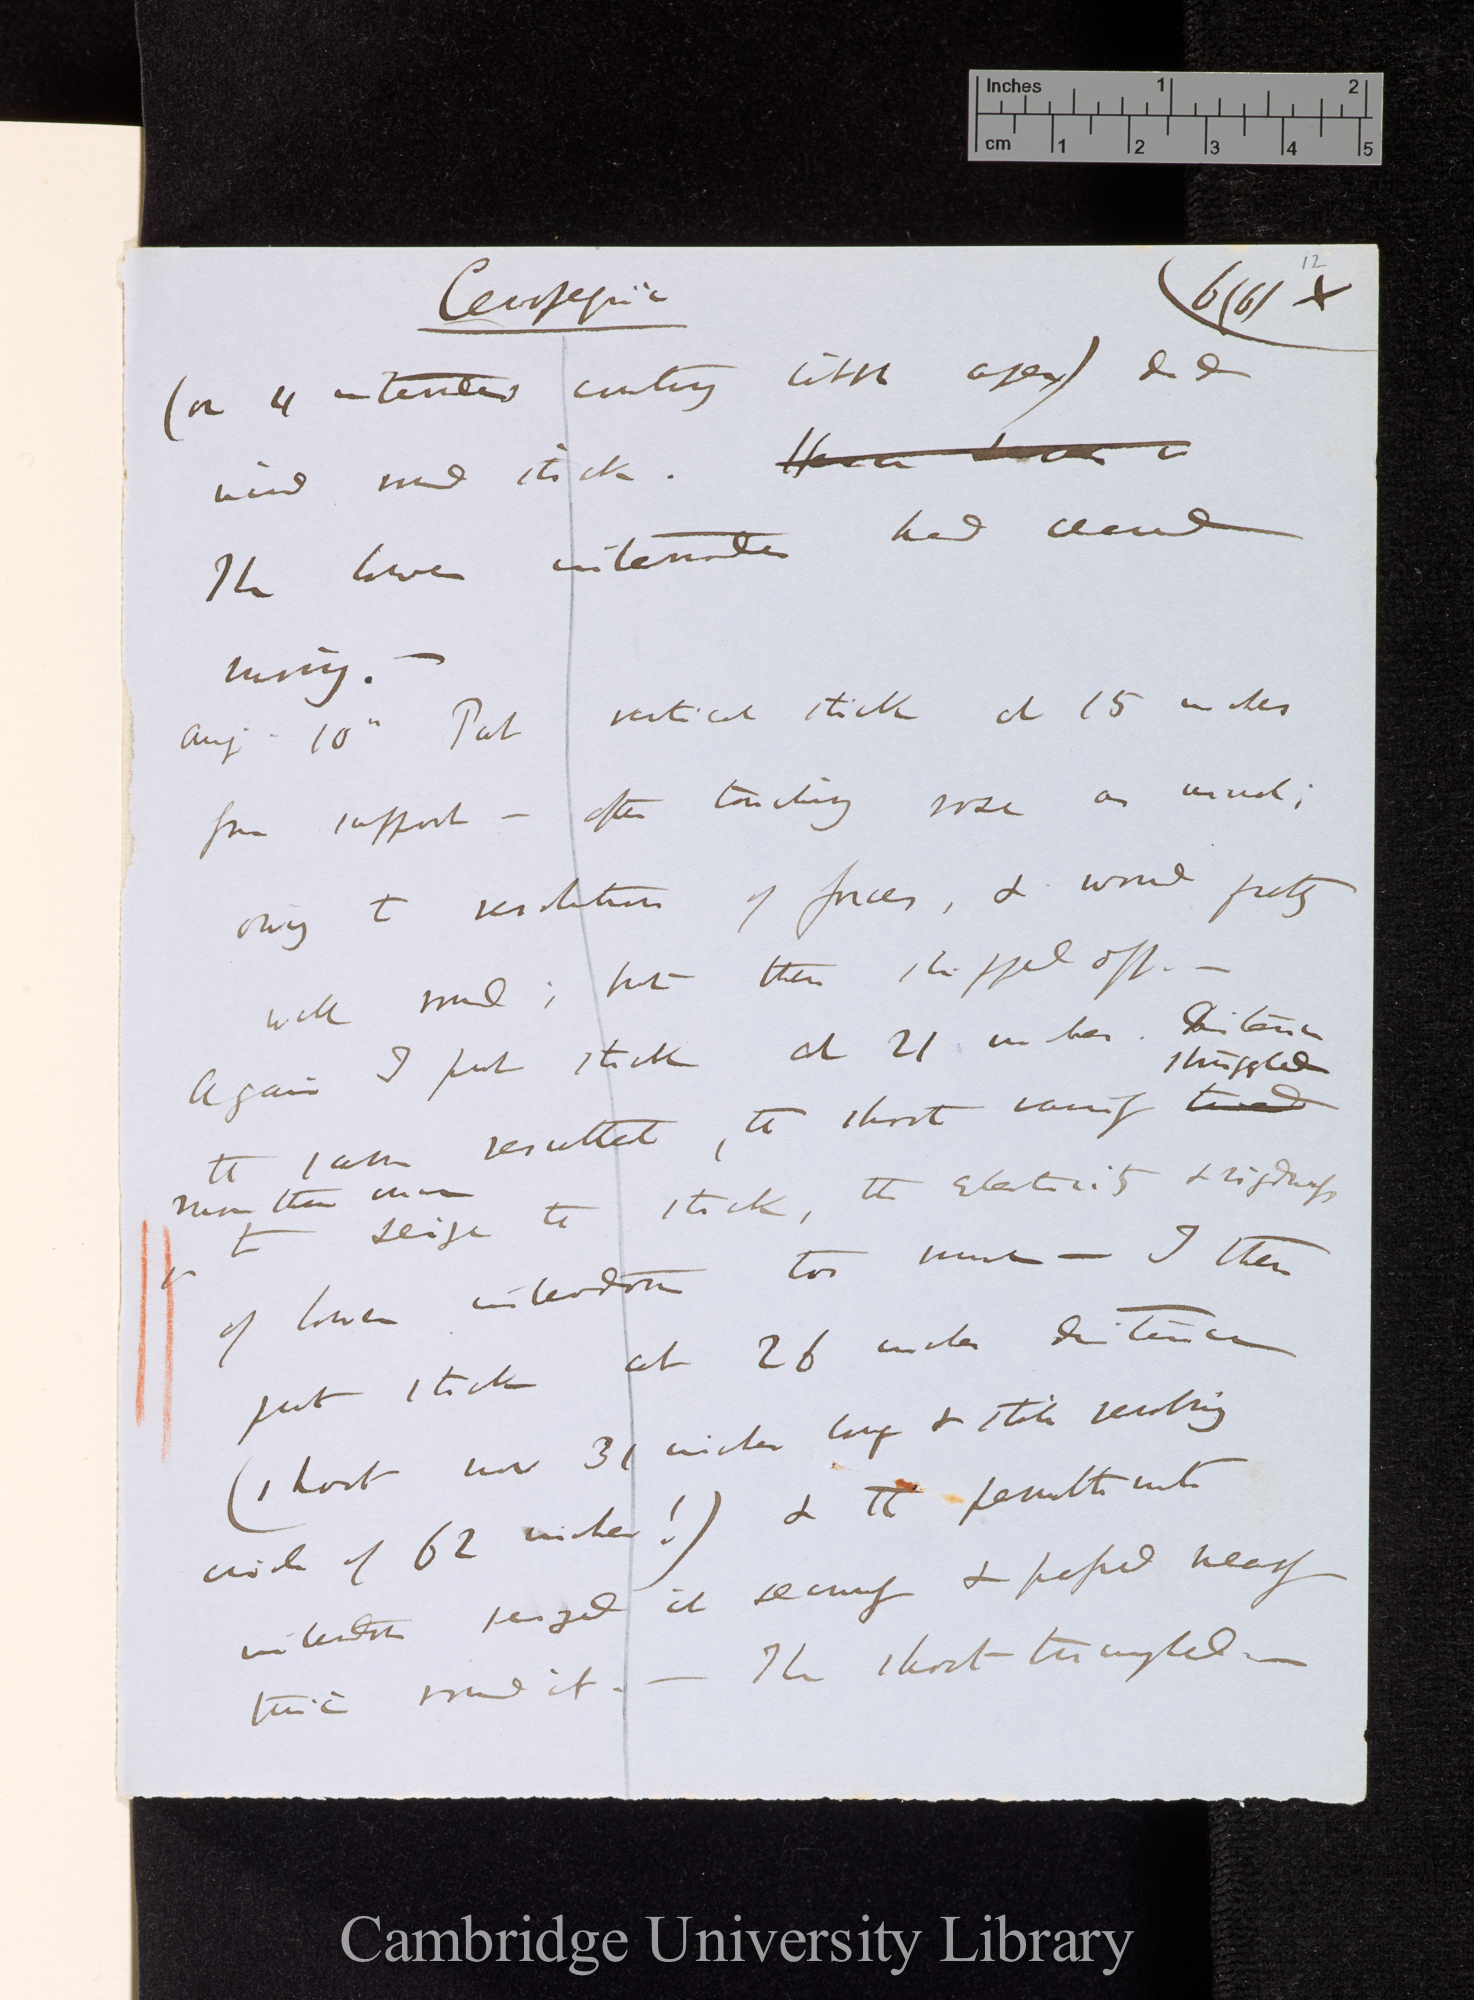 Inches 1 2
cm 1 2 3 4 5
12
Ceropegia
6(6) X
(or 4 internodes counting little apex) did
wind round stick.
The lower internodes had ceased
moving. —
Aug. 10" Put vertical stick at 15 inches
from support — after touching rose as usual;
owing to resolution of forces, & wound pretty
well round; but then slipped off. —
Again I put stick at 21 inches. Distance
struggled
the same resulted, the shoot vainly tried
more than once
to seize the stick, the elasticity & rigidness
of lower internodes too much — I then
put stick at 26 inches distance
(shoot now 31 inches long & still revolving
circle of 62 inches!) & the penultimate
internode seized it securely & passed nearly
twice round it. — The shoot triangled —
Cambridge University Library